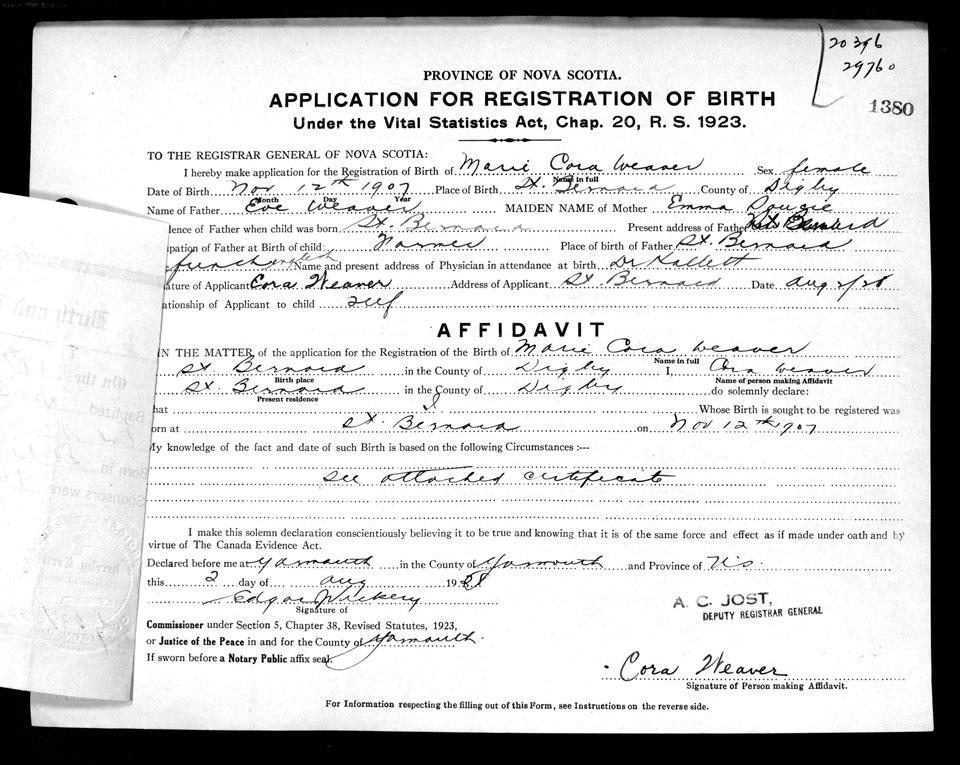 20396
29760
1380
PROVINCE OF NOVA SCOTIA.
APPLICATION FOR REGISTRATION OF BIRTH
Under the Vital Statistics Act, Chap. 20, R. S. 1923.
TO THE REGISTRAR GENERAL OF NOVA SCOTIA:
I hereby make application for the Registration of Birth of Marie Cora Weaver Sex female
Name in full
Date of Birth Nov 12th 1907 Place of Birth St. Bernard County of Digby
Month Day Year
Name of Father Eve Weaver MAIDEN NAME of Mother Emma
dence of Father when child was born St. Bernard Present address of Father St Bernard
upation of Father at Birth of child: Place of birth of Father St. Bernard
french english Name and present address of Physician in attendance at birth Dr Hallett
ature of Applicant Cora Weaver Address of Applicant St. Bernard Date Aug 2/28
ationship of Applicant to child self
AFFIDAVIT
IN THE MATTER, of the application for the Registration of the Birth of Marie Cora Weaver
Name in full
St. Bernard in the County of Digby I, Cora Weaver
Birth place Name of person making Affidavit
St. Bernard in the County of Digby do solemnly declare:
Present residence
hat I Whose Birth is sought to be registered was
orn at St. Bernard on Nov 12th 1907
My knowledge of the fact and date of such Birth is based on the following Circumstances :---
see attached certificate
I make this solemn declaration conscientiously believing it to be true and knowing that it is of the same force and effect as if made under oath and by
virtue of The Canada Evidence Act.
Declared before me at Yarmouth in the County of Yarmouth and Province of N.S.
this 2 day of Aug 1928
Edgar Vickery
Signature of
A. C. JOST,
DEPUTY REGISTRAR GENERAL
Commissioner under Section 5, Chapter 38, Revised Statutes, 1923,
or Justice of the Peace in and for the County of Yarmouth.
If sworn before a Notary Public affix seal.
Cora Weaver
Signature of Person making Affidavit.
For Information respecting the filling out of this Form, see Instructions on the reverse side.